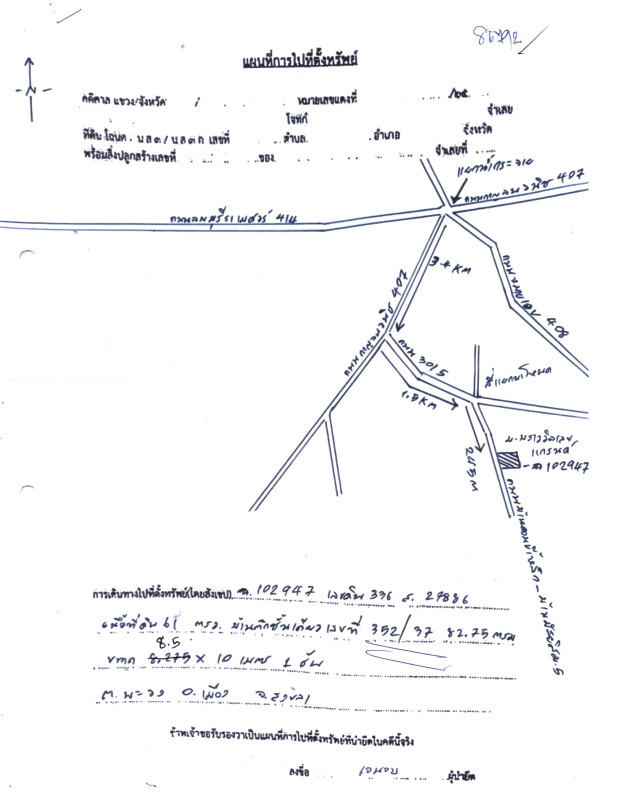 แผนที่การไปที่ตั้งทรัพย์
คดีศาล แขวง/จังหวัด หมายเลขแดงที่ /๒๕
โจทก์ จำเลย
ที่ดิน โฉนด น ส ๓ / น ส ๓ ก เลขที่ ตำบล อำเภอ จังหวัด
พร้อมสิ่งปลูกสร้างเลขที่ ของ จำเลยที่
แยกน้ำกระจาย
ถนนกาญจนวนิช 407
ถนนลพบุรีราเมศวร์ 414
3.4 KM
ถนนกาญจนวนิช 407
408
ถนน 3015
1.8 KM
245 M
แกรนด์
102947
การเดินทางไปที่ตั้งทรัพย์(โดยสังเขป) ฉ. 102947 เลขดิน 336 ส. 29886
เนื้อที่ดิน 61 ตรว. บ้านตึกชั้นเดียว เลขที่ 352/37 82.75 ตรม
8.5
ขนาด 8.275 X 10 เมตร 1 ชั้น
ต. พะวง อ. เมือง จ. สงขลา
ข้าพเจ้าขอรับรองว่าเป็นแผนที่การไปที่ตั้งทรัพย์ที่นำยึดในคดีนี้จริง
ลงชื่อ ผู้นำยึด